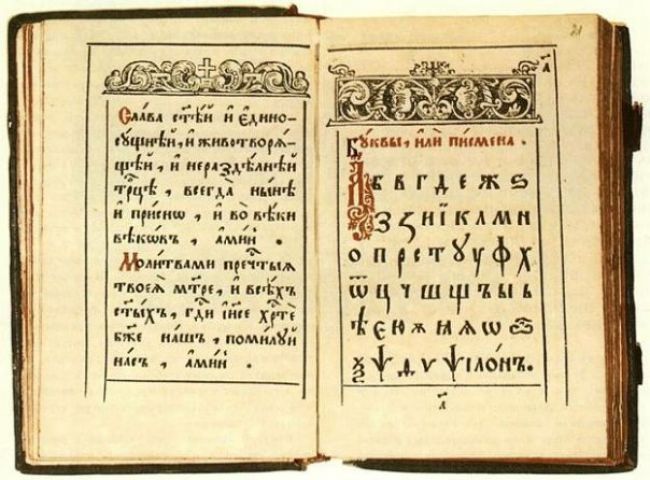 Сла́ва ст҃ѣ́й и҆ є҆дино-
сꙋ́щнѣй, и҆ животворѧ́-
щѣй, и҆ нераздѣ́лнѣй
трⷪ҇цѣ, всегда̀ ны́нѣ
и҆ при́снѡ, и҆ во вѣ́ки
вѣкѡ́въ, а҆ми́нь .
Моли́твами преч҃тыѧ
твоеѧ̀ мт҃ре, и҆ всѣ́хъ
ст҃ы́хъ, гдⷭ҇и і҆и҃се хрⷭ҇те
бж҃е на́шъ, поми́лꙋй
на́съ, а҆ми́нь .
21
а҃
Бꙋ́квы, и҆лѝ пи́смена .
А б в г д е ж ѕ
З ꙁ и ї к л м н
о п р с т ꙋ у ф х
ѿ ц ч ш щ ъ ы ь
ѣ є ю ѫ ꙗ ѧ ѡ ѽ
ѯ ѱ ѳ ѵ ѱїло́нъ .
а҃